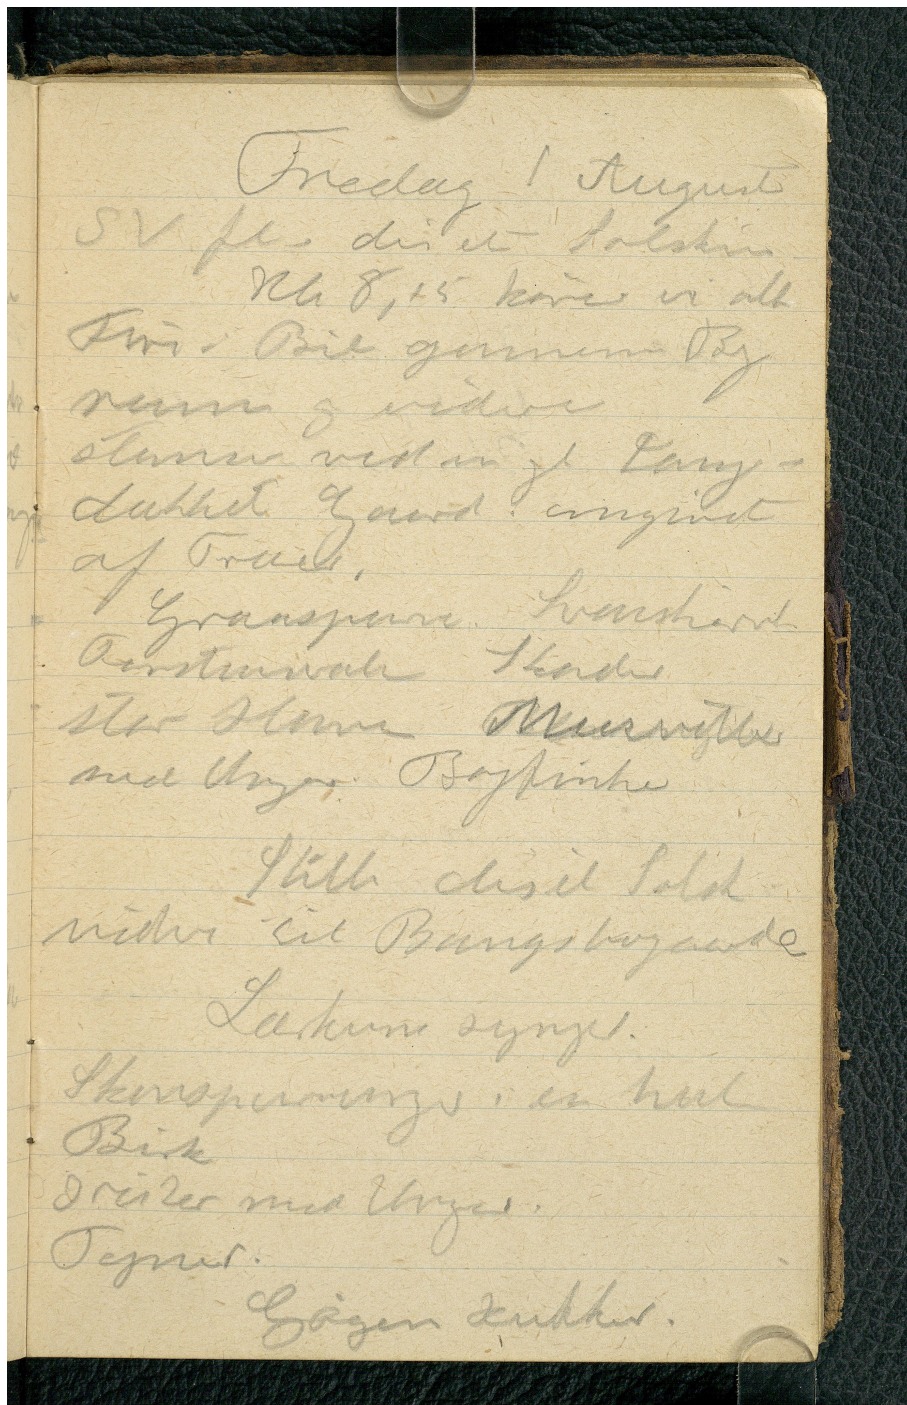 Fredag 1 August
SV fl. diset Solskin
Kl 8,15 kører vi alle
Fire i Bil gennem Bag
rum og videre
stanser ved en gl Tang-
dækket Gaard. omgivet
af Træer,
Graaspurve. Svaleredt
Forstuesvale Skader
stor Stære Musvitter
med Unger. Bogfinke
Stille diset Solsk
videre til Bangsbogaarde
Lærkerne synger.
Skovspurveunger i en hul
Birk
Drisler med Unger.
Tegner.
Gøgen kukker.